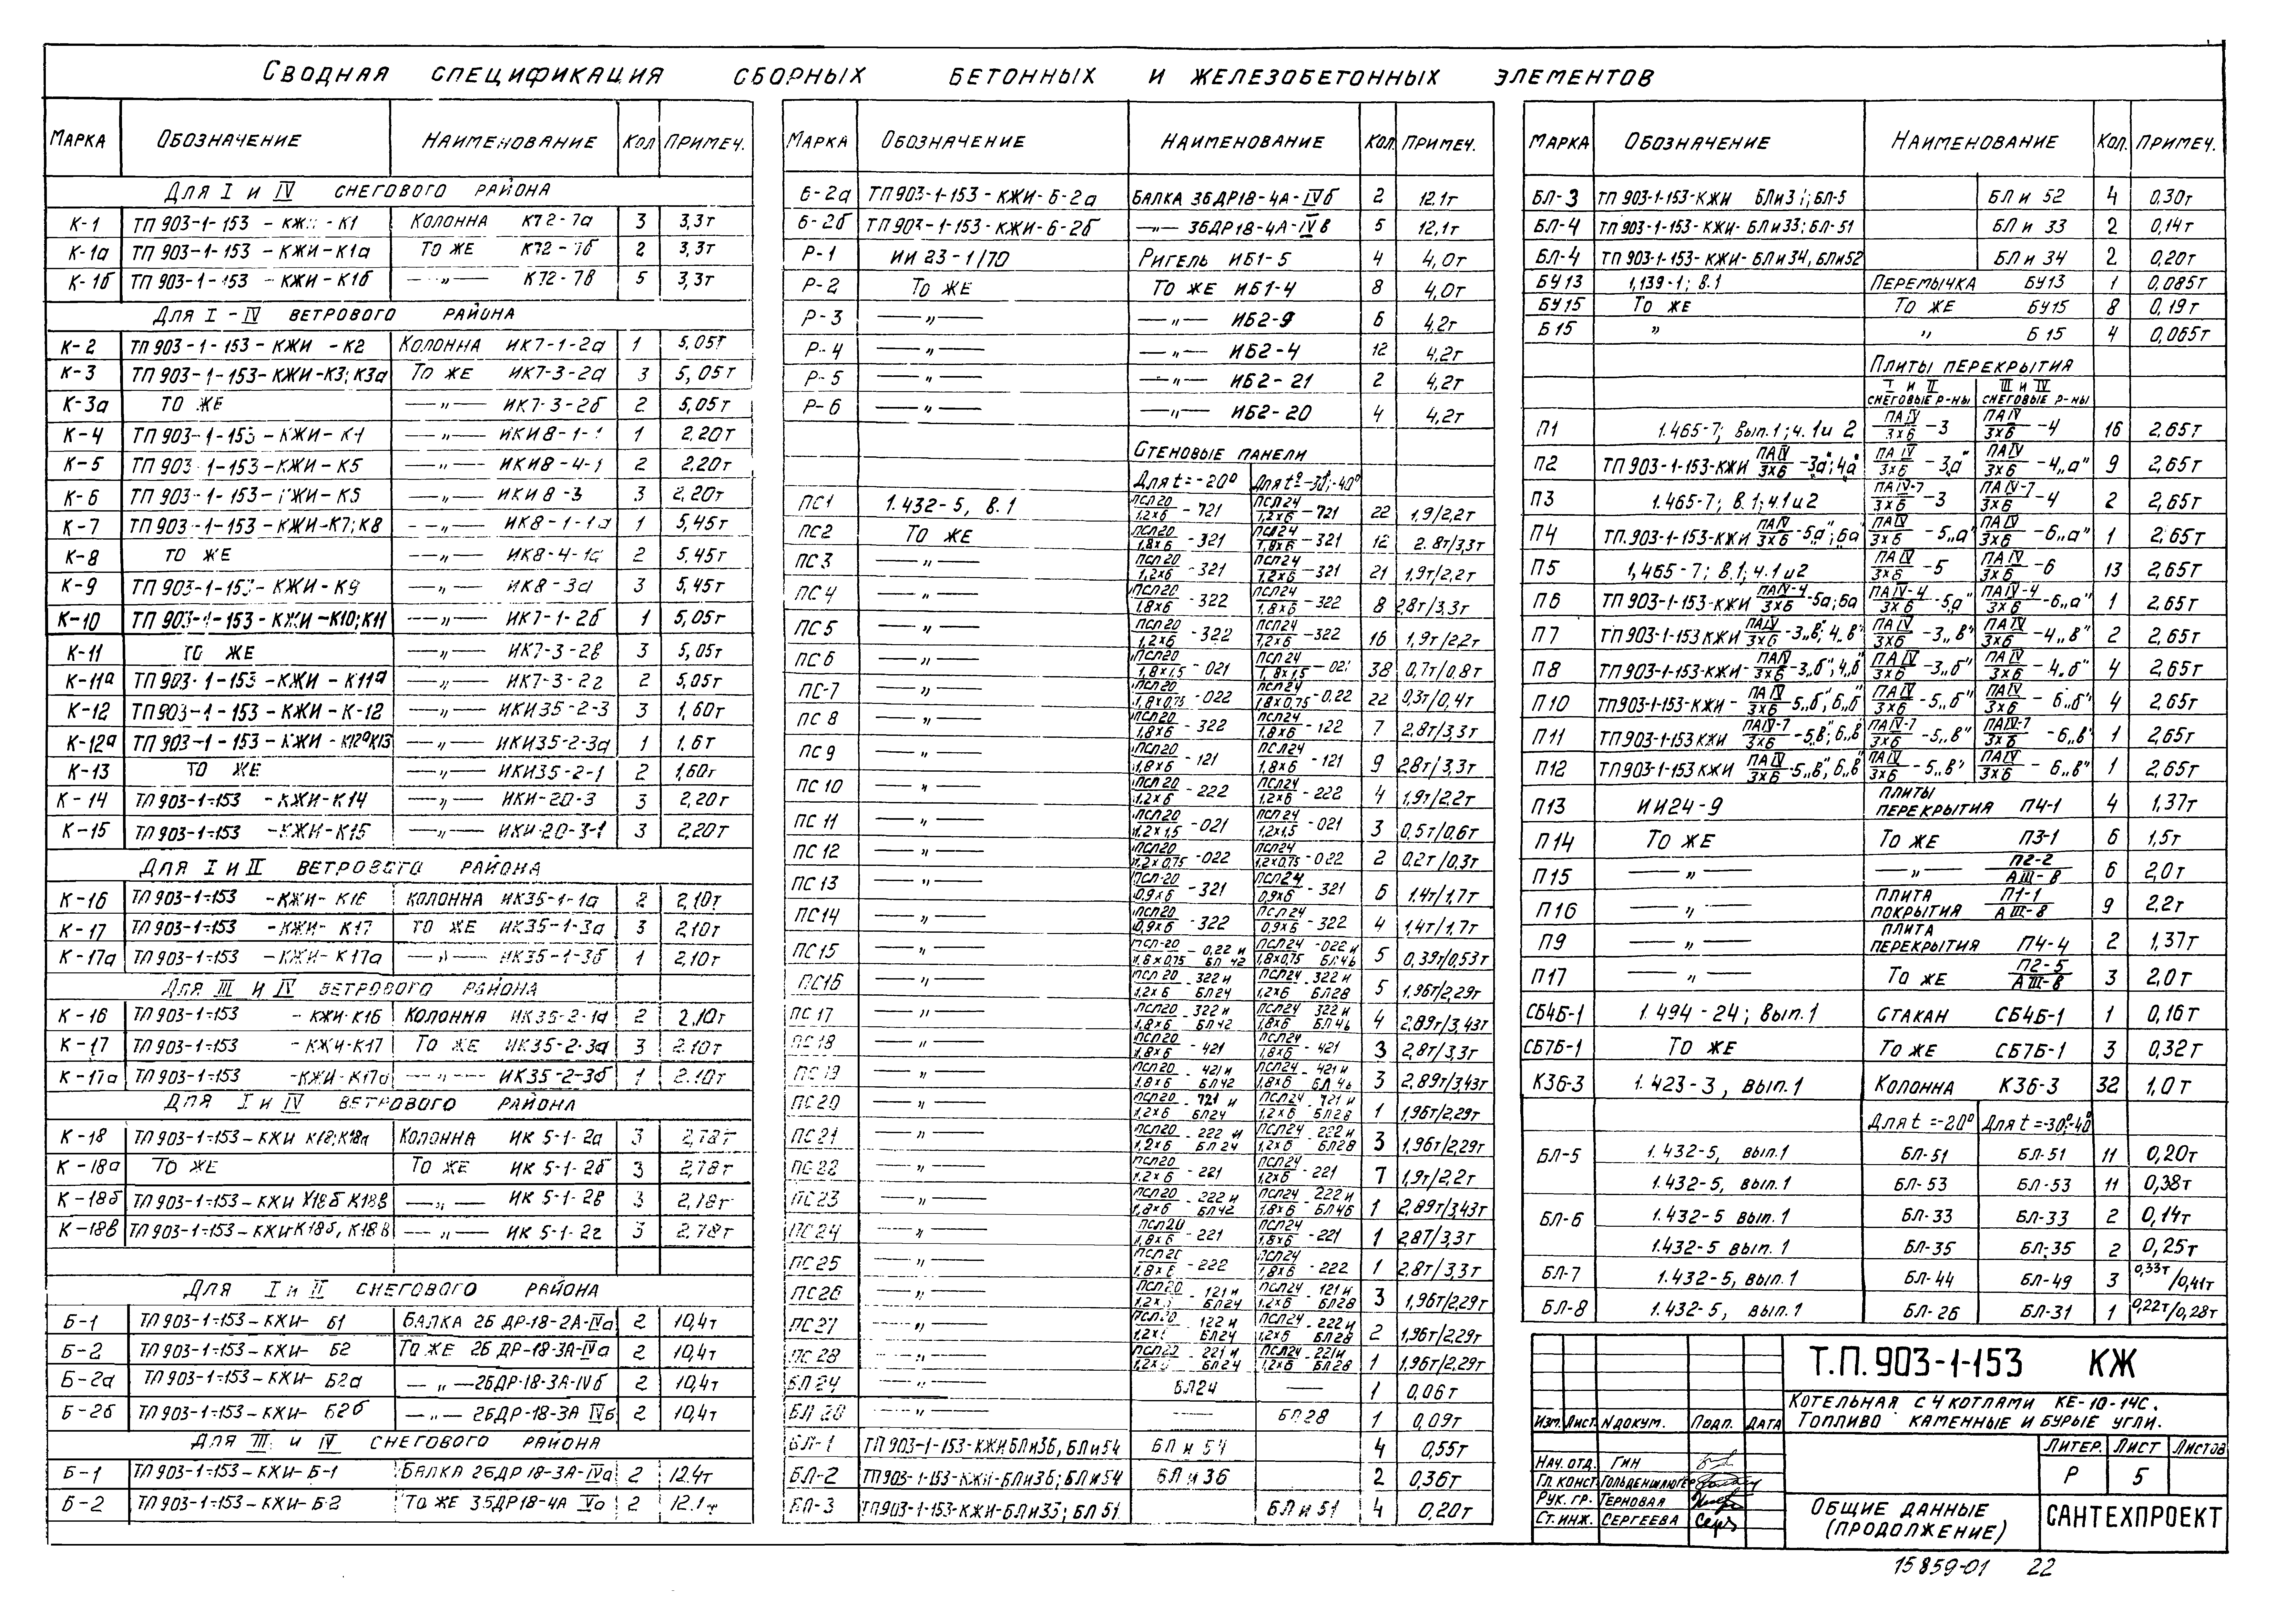 Сводная спецификация сборных бетонных и железобетонных элементов
Марка Обозначение Наименование Кол Примеч.
Для I и IV снегового района
К-1 ТП 903-1-153 - КЖИ - К1 Колонна К72-7а 3 3,3т
К-1а ТП 903-1-153 - КЖИ-К1а То же К72-7б 2 3,3т
К-1б ТП 903-1-153 - КЖИ-К1б —〃— К72-7в 5 3,3т
Для I-IV ветрового района
К-2 ТП 903-1-153-КЖИ -К2 Колонна ИК7-1-2а 1 5,05т
К-3 ТП 903-1-153-КЖИ-К3; К3а То же ИК7-3-2а 3 5,05т
К-3а То же —〃— ИК7-3-2б 2 5,05т
К-4 ТП 903-1-153-КЖИ- —〃— ИКИ8-1-1 1 2,20т
К-5 ТП 903-1-153-КЖИ-К5 —〃— ИКИ8-4-1 2 2,20т
К-6 ТП 903-1-153- —〃— ИКИ8-3 3 2,20т
К-7 ТП 903-1-153-КЖИ-К7; К8 —〃— ИК8-1-1а 1 5,45т
К-8 То же —〃— ИК8-4-1а 2 5,45т
К-9 ТП 903-1-153-КЖИ-К9 —〃— ИК8-3а 3 5,45т
К-10 ТП 903-1-153-КЖИ-К10; К11 —〃— ИК7-1-2б 1 5,05т
К-11 То же —〃— ИК7-3-2в 3 5,05т
К-11а ТП 903-1-153-КЖИ-К11а —〃— ИК7-3-2г 2 5,05т
К-12 ТП 903-1-153-КЖИ-К-12 —〃— ИКИ35-2-3 3 1,60т
К-12а ТП 903-1-153-КЖИ-К12а К13 —〃— ИКИ35-2-3а 1 1.6т
К-13 То же —〃— ИКИ35-2-1 2 1,60т
К-14 ТП 903-1-153 -КЖИ-К14 —〃— ИКИ-20-3 3 2,20т
К-15 ТП 903-1-153 -КЖИ-К15 —〃— ИКИ-20-3-1 3 2,20т
Для I и II ветрового района
К-16 ТП 903-1-153 -КЖИ-К16 Колонна ИК35-1-1а 2 2,10т
К-17 ТП 903-1-153 -КЖИ-К17 То же ИК35-1-3а 3 2,10т
К-17а ТП 903-1-153 -КЖИ-К17а —〃— ИК35-1-3б 1 2,10т
Для III и IV ветрового района
К-16 ТП 903-1-153 -КЖИ-К16 Колонна ИК35-2-1а 2 2,10т
К-17 ТП 903-1-153 -КЖИ-К17 То же ИК35-2-3а 3 2.10т
К-17а ТП 903-1-153 -КЖИ-К17а —〃— ИК35-2-3б 1 2.10т
Для I и IV ветрового района
К-18 ТП 903-1-153-КЖИ К18; К18а Колонна ИК 5-1-2а 3 2,78т
К-18а То же То же ИК 5-1-2б 3 2,78т
К-18б ТП 903-1-153-КЖИ К18б К18в —〃— ИК 5-1-2в 3 2,78т
К-18в ТП 903-1-153-КЖИ К18б, К18в —〃— ИК 5-1-2г 3 2,78т
Для I и II снегового района
Б-1 ТП 903-1-153-КЖИ- Б1 Балка 2БДР-18-2А-IVа 2 10,4т
Б-2 ТП 903-1-153-КЖИ- Б2 То же 2БДР-18-3А-IVа 2 10,4т
Б-2а ТП 903-1-153-КЖИ- Б2а —〃—2БДР-18-3А-IVб 2 10,4т
Б-2б ТП 903-1-153-КЖИ- Б2б —〃—2БДР-18-3А IVб 2 10,4т
Для III и IV снегового района
Б-1 ТП 903-1-153-КЖИ-Б-1 Балка 2БДР18-3А-IVа 2 12.4т
Б-2 ТП 903-1-153-КЖИ-Б-2 То же 3БДР18-4А 2 12.1т
Марка Обозначение Наименование Кол. Примеч.
Б-2а ТП 903-1-153-КЖИ-Б-2а Балка 3БДР18-4А-IVб 2 12.1т
Б-2б ТП 903-1-153-КЖИ-Б-2б —〃— 3БДР18-4А-IVв 5 12,1т
Р-1 ИИ 23-1/70 Ригель ИБ1-5 4 4,0т
Р-2 То же То же ИБ1-4 8 4,0т
Р-3 —〃— —〃— ИБ2-9 6 4,2т
Р-4 —〃— —〃— ИБ2-4 12 4,2т
Р-5 —〃— —〃— ИБ2-21 2 4,2т
Р-6 —〃— —〃— ИБ2-20 4 4,2т
Стеновые панели
Для t=-20° Для t°-30°;-40°
ПС1 1.432-5, в.1 ПСЛ20/1,2х6 -721 ПСЛ24/1,2х6 -721 22 1,9/2,2т
ПС2 То же ПСЛ20/1,8х6 -321 ПСЛ24/1,8х6 -321 12 2.8т/3,3т
ПС3 —〃— ПСЛ20/1,2х6 -321 ПСЛ24/1,2х6 -321 21 1,9т/2,2т
ПС4 —〃— ПСЛ20/1,8х6 -322 ПСЛ24/1,8х6 -322 8 2,8т/3,3т
ПС5 —〃— ПСЛ20/1,2х6 -322 ПСЛ24/1,2х6 -322 16 1,9т/2,2т
ПС6 —〃— ПСЛ20/1,8х1,5 -021 ПСЛ24/1,8х1,5 -021 38 0,7т/0,8т
ПС-7 —〃— ПСЛ20/1,8х0,75 -022 ПСЛ24/1,8х0,75 -0.22 22 0,3т/0,4т
ПС8 —〃— ПСЛ20/1,8х6 -322 ПСЛ24/1,8х6 -122 7 2,8т/3,3т
ПС9 —〃— ПСЛ20/1,8х6 -121 ПСЛ24/1,8х6 -121 9 2,8т/3,3т
ПС10 —〃— ПСЛ20/1.2х6 -222 ПСЛ24/1,2х6 -222 4 1,9т/2,2т
ПС11 —〃— ПСЛ20/1.2х1,5 -021 ПСЛ24/1,2х1,5 -021 3 0,5т/0,6т
ПС12 —〃— ПСЛ20/1.2х0,75 -022 ПСЛ24/1,2х0,75 -022 2 0,2т/0,3т
ПС13 —〃— ПСЛ-20/0,9х6 -321 ПСЛ24/0,9х6 -321 6 1.4т/1,7т
ПС14 —〃— ПСЛ20/0,9х6 -322 ПСЛ24/0,9х6 -322 4 1,4т/1,7т
ПС15 —〃— ПСЛ-20/1,8х0,75 -0,22 и БЛ42 ПСЛ24/1,8х0,75 -022 и БЛ46 5 0,39т/0,53т
ПС16 —〃— ПСЛ20/1,2х6 -322 и БЛ24 ПСЛ24/1,2х6 -322 и БЛ28 5 1.96т/2,29т
ПС17 —〃— ПСЛ20/1,8х6 -322 и БЛ42 ПСЛ24/1,8х6 322 и БЛ46 4 2,89т/3,43т
ПС18 —〃— ПСЛ20/1,8х6 -421 ПСЛ24/1,8х6 -421 3 2,8т/3,3т
ПС19 —〃— ПСЛ20/1,8х6 -421 и БЛ42 ПСЛ24/1,8х6 -421 и БЛ46 3 2,89т/3,43т
ПС20 —〃— ПСЛ20/1,2х6 -721 и БЛ24 ПСЛ24/1,2х6 -721 и БЛ28 1 1,96т/2,29т
ПС21 —〃— ПСЛ20/1,2х6 -222 и БЛ24 ПСЛ24/1,2х6 -222 и БЛ28 3 1,96т/2,29т
ПС22 —〃— ПСЛ20/1,2х6 -221 ПСЛ24/1,2х6 -221 7 1,9т/2,2т
ПС23 —〃— ПСЛ20/1,8х6 -222 и БЛ42 ПСЛ24/1,8х6 -222 и БЛ46 1 2,89т/3,43т
ПС24 —〃— ПСЛ20/1,8х6 -221 ПСЛ24/1,8х6 -221 1 2,8т/3,3т
ПС25 —〃— ПСЛ20/1,8х6 -222 ПСЛ24/1,8х6 -222 1 2,8т/3,3т
ПС26 —〃— ПСЛ20/1,2х -121 и БЛ24 ПСЛ24/1,2х6 121 и БЛ28 3 1,96т/2,29т
ПС27 —〃— 1,2х 122 и БЛ24 ПСЛ24/1,2х6 -222 и БЛ28 2 1,96т/2,29т
ПС28 —〃— ПСЛ20/1,2х -221 и БЛ24 ПСЛ24/1,2х6 -221и БЛ28 1 1,96т/2,29т
БЛ24 —〃— БЛ24 — 1 0,06т
БЛ28 —〃— — БЛ28 1 0,09т
БЛ-1 ТП 903-1-153-КЖИБЛи36, БЛи54 БЛи54 4 0,55т
БЛ-2 ТП 903-1-153-КЖИ-БЛи36; БЛи54 БЛи36 2 0,36т
БЛ-3 ТП 903-1-153-КЖИ-БЛи33; БЛ51 БЛи51 4 0,20т
Марка Обозначение Наименование Кол. Примеч.
БЛ-3 ТП 903-1-153-КЖИ БЛи3 ; БЛ-5 БЛи 52 4 0.30т
БЛ-4 ТП 903-1-153-КЖИ- БЛи33; БЛ-51 БЛи 33 2 0,14т
БЛ-4 ТП 903-1-153-КЖИ- БЛи34, БЛи52 БЛи 34 2 0,20т
БУ13 1,139-1; в.1 Перемычка БУ13 1 0,085т
БУ15 То же То же БУ15 8 0,19т
Б15 〃 〃 Б 15 4 0,065т
Плиты перекрытия
I и II снеговые р-ны III и IV снеговые р-ны
П1 1.465-7; Вып.1; ч.1 и 2 ПАIV/3х6 -3 ПАIV/3х6 -4 16 2,65т
П2 ТП 903-1-153-КЖИ ПАIV/3х6 -3„а"; 4„а" ПАIV/3х6 -3„а" ПАIV/3х6 -4„а" 9 2,65т
П3 1.465-7; в.1; ч.1 и 2 ПАIV-7/3х6 -3 ПАIV-7/3х6 -4 2 2,65т
П4 ТП.903-1-153-КЖИ ПАIV/3х6 -5а"; 6а" ПАIV/3х6 -5„а" ПАIV/3х6 -6„а" 1 2,65т
П5 1,465-7; в.1; ч.1 и 2 ПАIV/3х6 -5 ПАIV/3х6 -6 13 2,65т
П6 ТП 903-1-153-КЖИ ПАIV-4/3х6 -5а; 6а ПАIV-4/3х6 -5„а" ПАIV-4/3х6 -6„а" 1 2,65т
П7 ТП 903-1-153 КЖИ ПАIV/3х6 -3„в"; 4„в" ПАIV/3х6 -3„в" ПАIV/3х6 -4„в" 2 2,65т
П8 ТП 903-1-153-КЖИ- ПАIV/3х6 -3„б"; 4„б" ПАIV/3х6 -3„б" ПАIV/3х6 -4„б" 4 2,65т
П10 ТП 903-1-153-КЖИ- ПАIV/3х6 5„б"; 6„б" ПАIV/3х6 -5„б" ПАIV/3х6 - 6„б" 4 2,65т
П11 ТП 903-1-153 КЖИ ПАIV-7/3х6 -5„в"; 6„в" ПАIV-7/3х6 -5„в" ПАIV-7/3х6 -6„в" 1 2,65т
П12 ТП 903-1-153 КЖИ ПАIV/3х6 -5„в"; 6„в" ПАIV/3х6 -5„в" ПАIV/3х6 - 6„в" 1 2,65т
П13 ИИ24-9 Плиты перекрытия П4-1 4 1,37т
П14 То же То же П3-1 6 1,5т
П15 —〃— —〃— П2-2/АIII-8 6 2,0т
П16 —〃— Плита покрытия П1-1/АIII-8 9 2,2т
П9 —〃— Плита перекрытия П4-4 2 1,37т
П17 —〃— То же П2-5/АIII-8 3 2,0т
СБ4Б-1 1.494-24; Вып.1 Стакан СБ4Б-1 1 0,16т
СБ7Б-1 То же То же СБ7Б-1 3 0,32т
К36-3 1.423-3, вып.1 Колонна К36-3 32 1,0т
Для t=-20° Для t=-30°;-40°
БЛ-5 1.432-5, вып.1 БЛ-51 БЛ-51 11 0,20т
1.432-5, вып.1 БЛ-53 БЛ-53 11 0,38т
БЛ-6 1.432-5 вып.1 БЛ-33 БЛ-33 2 0,14т
1.432-5 вып.1 БЛ-35 БЛ-35 2 0,25т
БЛ-7 1.432-5, вып.1 БЛ-44 БЛ-49 3 0,33т/0,41т
БЛ-8 1.432-5, вып.1 БЛ-26 БЛ-31 1 0,22т/0,28т
Т.П. 903-1-153 КЖ
Котельная с 4 котлами КЕ-10-14С.
Топливо каменные и бурые угли.
Изм. Лист N докум. Подп. Дата
Литер. Лист Листов
Р 5
Нач. отд. Гин
Гл. конст. Гольденшлюгер
Рук. гр. Терновая
Ст. инж. Сергеева
Общие данные
(продолжение)
САНТЕХПРОЕКТ
15859-01 22